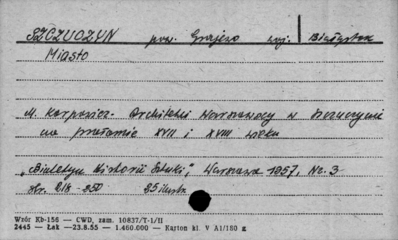 SZCZUCZYN pow. Grajewo woj. Białystok
Miasto
M. Karpowicz - Architekci Warszawscy w Szczuczynie
na przełomie XVII i XVIII wieku
„Biuletyn Historii Sztuki", Warszawa 1957, Nr. 3
str. 218 - 350 25 ilustr.
Wzór Kb-156 — CWD, zam. 10837/T-1/II
2445 — Łak —23.8.55 — 1.460.000 — Karton kl. V A1/180 g